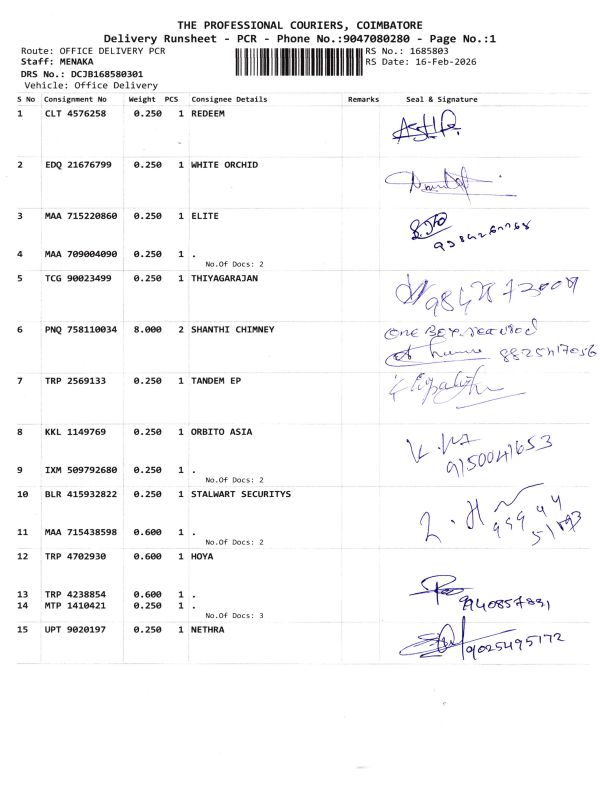 THE PROFESSIONAL COURIERS, COIMBATORE
Delivery Runsheet - PCR - Phone No.:9047080280 - Page No.:1
Route: OFFICE DELIVERY PCR RS No.: 1685803
Staff: MENAKA RS Date: 16-Feb-2026
DRS No.: DCJB168580301
Vehicle: Office Delivery
S No Consignment No Weight PCS Consignee Details Remarks Seal & Signature
1 CLT 4576258 0.250 1 REDEEM
2 EDQ 21676799 0.250 1 WHITE ORCHID
3 MAA 715220860 0.250 1 ELITE
4 MAA 709004090 0.250 1 .
No.Of Docs: 2
5 TCG 90023499 0.250 1 THIYAGARAJAN
6 PNQ 758110034 8.000 2 SHANTHI CHIMNEY one Box received
8825417056
7 TRP 2569133 0.250 1 TANDEM EP
8 KKL 1149769 0.250 1 ORBITO ASIA
9150041653
9 IXM 509792680 0.250 1 .
No.Of Docs: 2
10 BLR 415932822 0.250 1 STALWART SECURITYS
11 MAA 715438598 0.600 1 .
No.Of Docs: 2
12 TRP 4702930 0.600 1 HOYA
13 TRP 4238854 0.600 1 .
14 MTP 1410421 0.250 1 . 9940857891
No.Of Docs: 3
15 UPT 9020197 0.250 1 NETHRA 9025495172